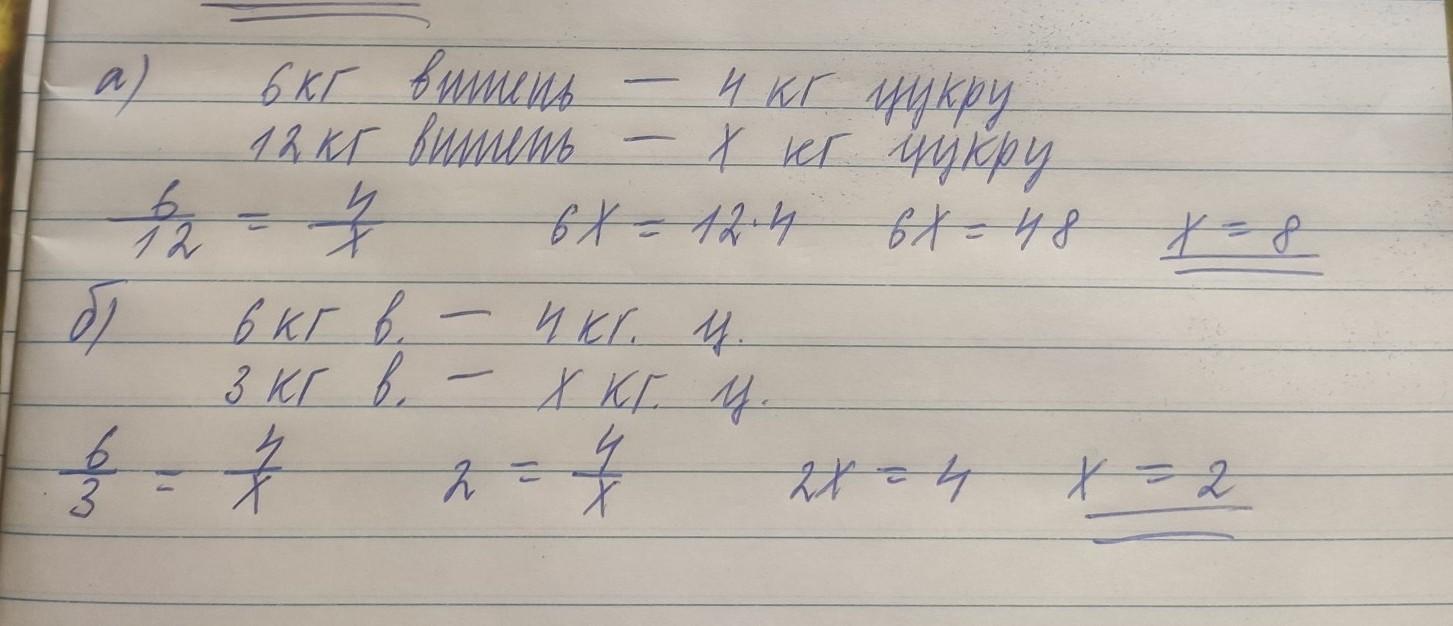 а) 6кг вишень — 4 кг цукру
12кг вишень — х кг цукру
6/12 = 4/х 6х = 12·4 6х = 48 х = 8
б) 6 кг в. — 4 кг. ц.
3 кг в. — х кг. ц.
6/3 = 4/х 2 = 4/х 2х = 4 х = 2